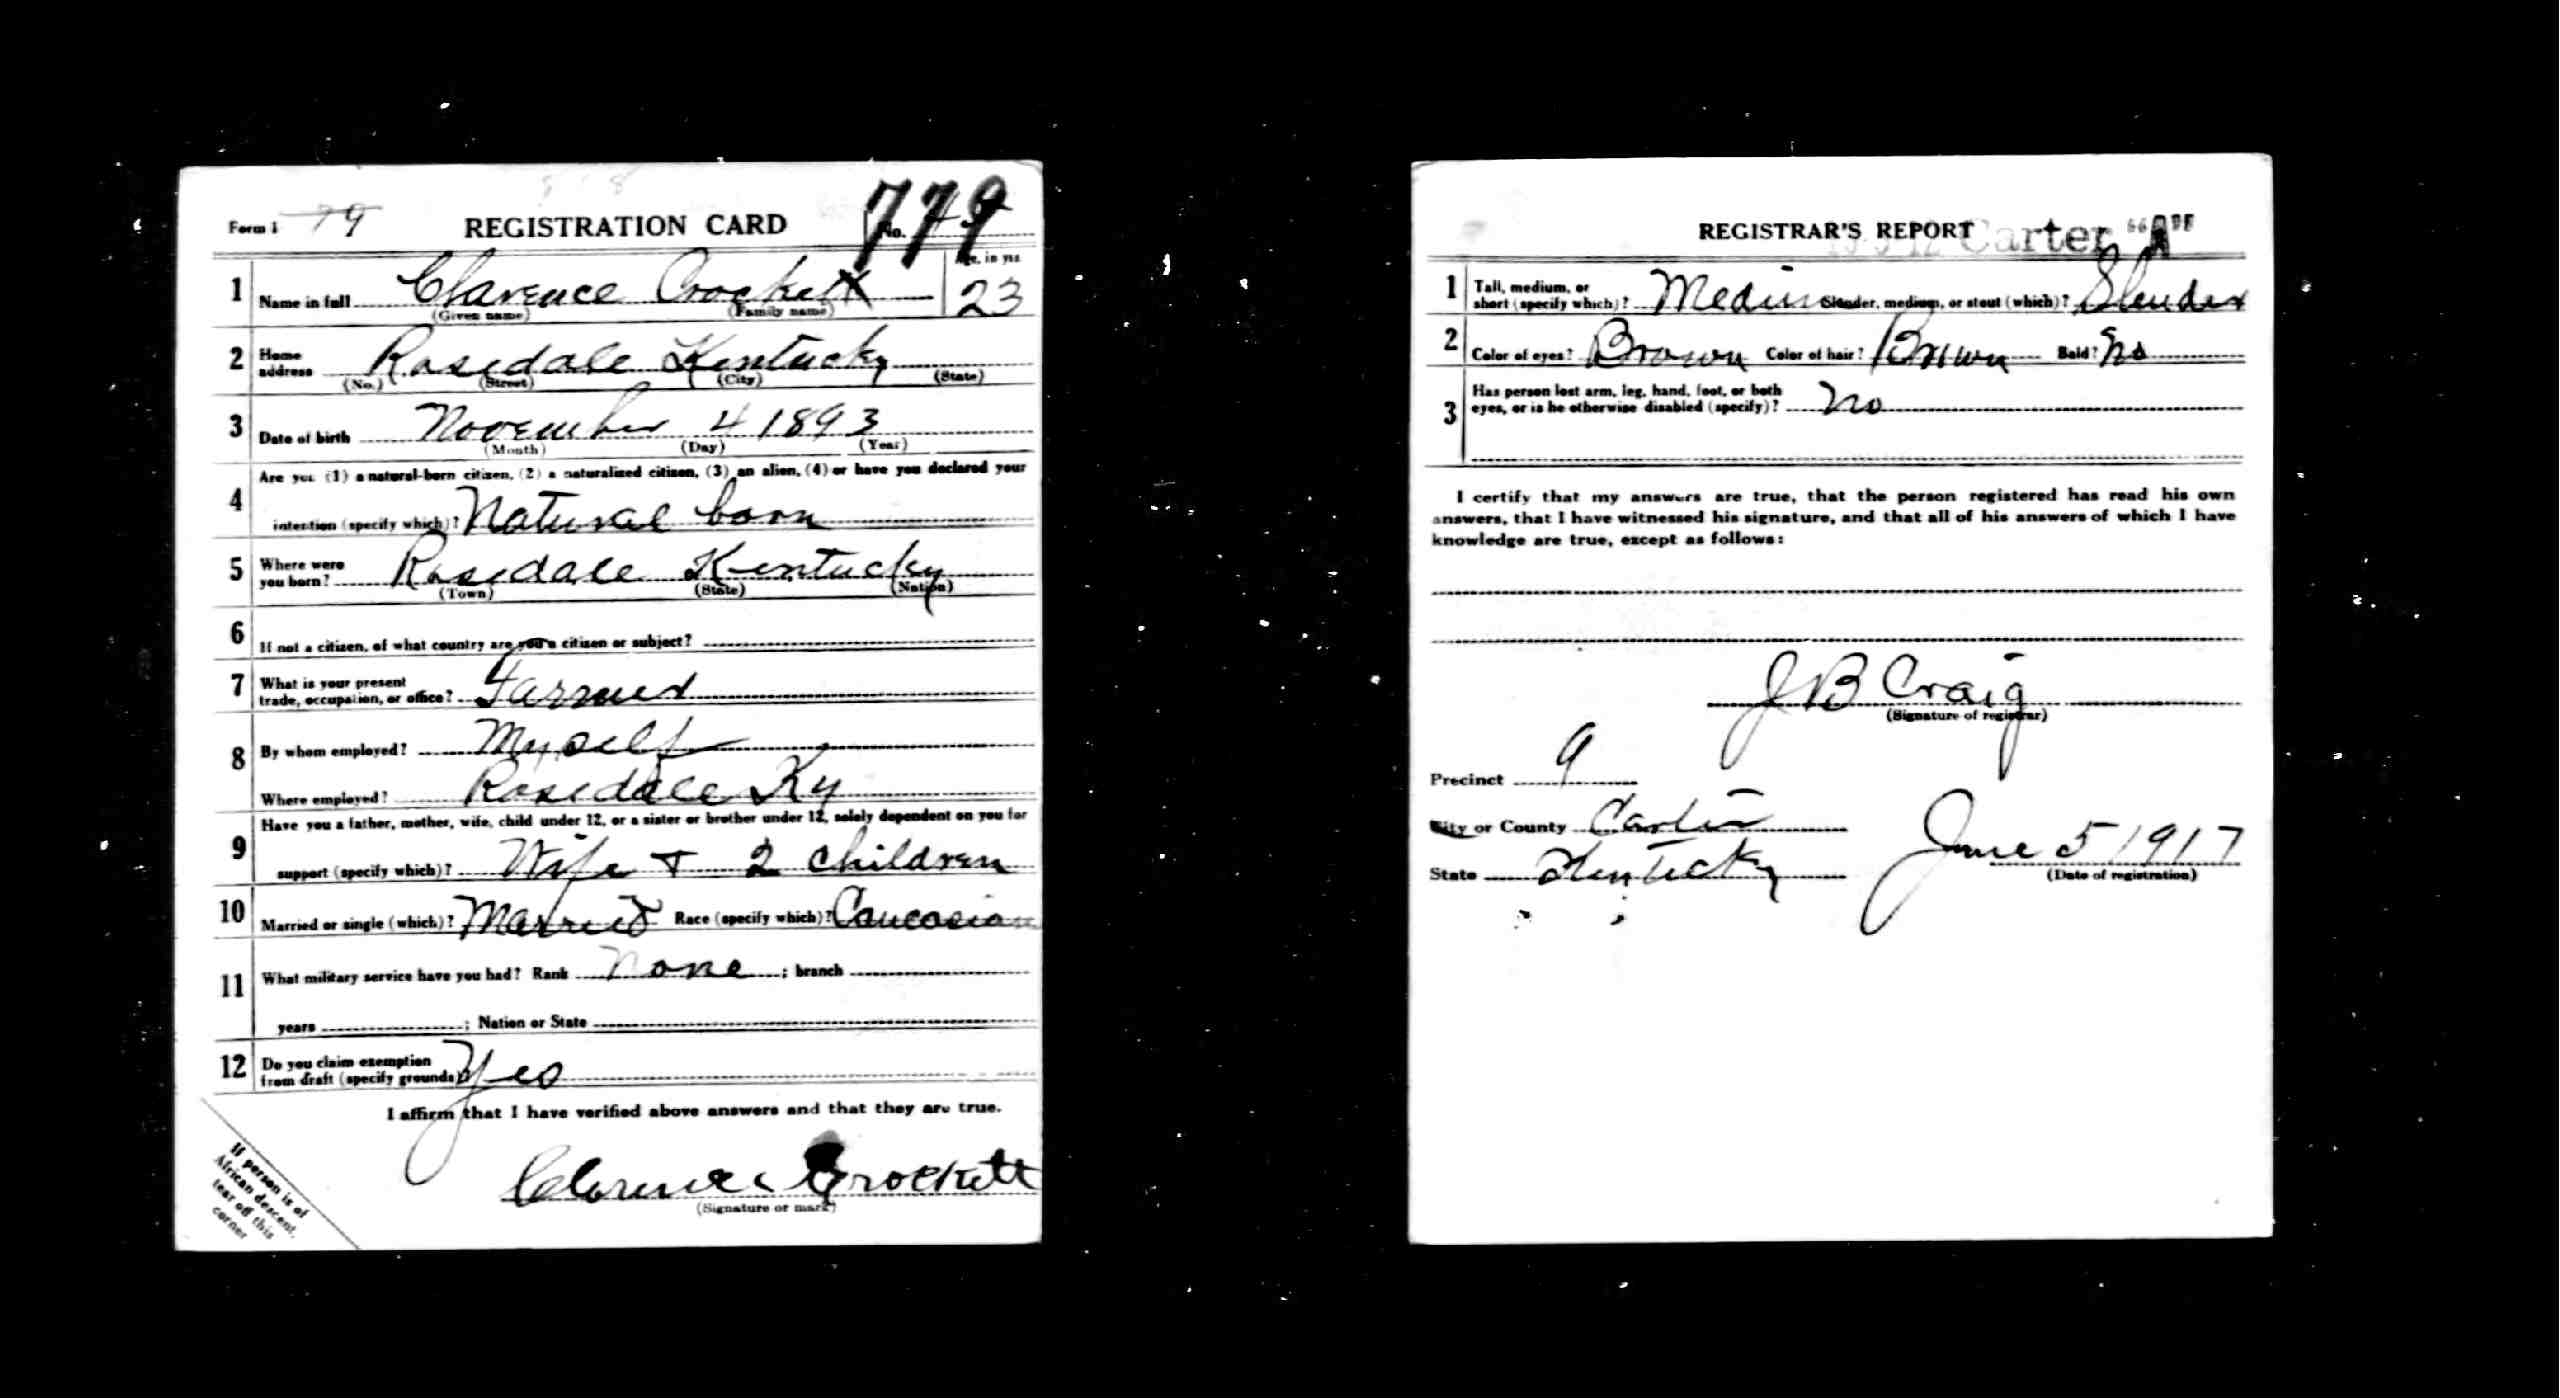 Form 1 79 REGISTRATION CARD No. 779
1 Name in full Clarence Crockett Age, in yrs. 23
(Given name) (Family name)
2 Home address Rosedale Kentucky
(No.) (Street) (City) (State)
3 Date of birth November 4 1893
(Month) (Day) (Year)
4 Are you (1) a natural-born citizen, (2) a naturalized citizen, (3) an alien, (4) or have you declared your
intention (specify which)? Natural born
5 Where were you born? Rosedale Kentucky
(Town) (State) (Nation)
6 If not a citizen, of what country are you a citizen or subject?
7 What is your present
trade, occupation, or office? Farmer
8 By whom employed? Myself
Where employed? Rosedale Ky
9 Have you a father, mother, wife, child under 12, or a sister or brother under 12, solely dependent on you for
support (specify which)? Wife + 2 children
10 Married or single (which)? Married Race (specify which)? Caucasian
11 What military service have you had? Rank none ; branch
years ; Nation or State
12 Do you claim exemption
from draft (specify grounds)? Yes
I affirm that I have verified above answers and that they are true.
Clarence Crockett
(Signature or mark)
If person is of
African descent,
tear off this
corner
REGISTRAR'S REPORT Carter "A"
1 Tall, medium, or
short (specify which)? Medium Slender, medium, or stout (which)? Slender
2 Color of eyes? Brown Color of hair? Brown Bald? No
3 Has person lost arm, leg, hand, foot, or both
eyes, or is he otherwise disabled (specify)? No
I certify that my answers are true, that the person registered has read his own
answers, that I have witnessed his signature, and that all of his answers of which I have
knowledge are true, except as follows:
J B Craig
(Signature of registrar)
Precinct 9
City or County Carter
State Kentucky June 5 1917
(Date of registration)